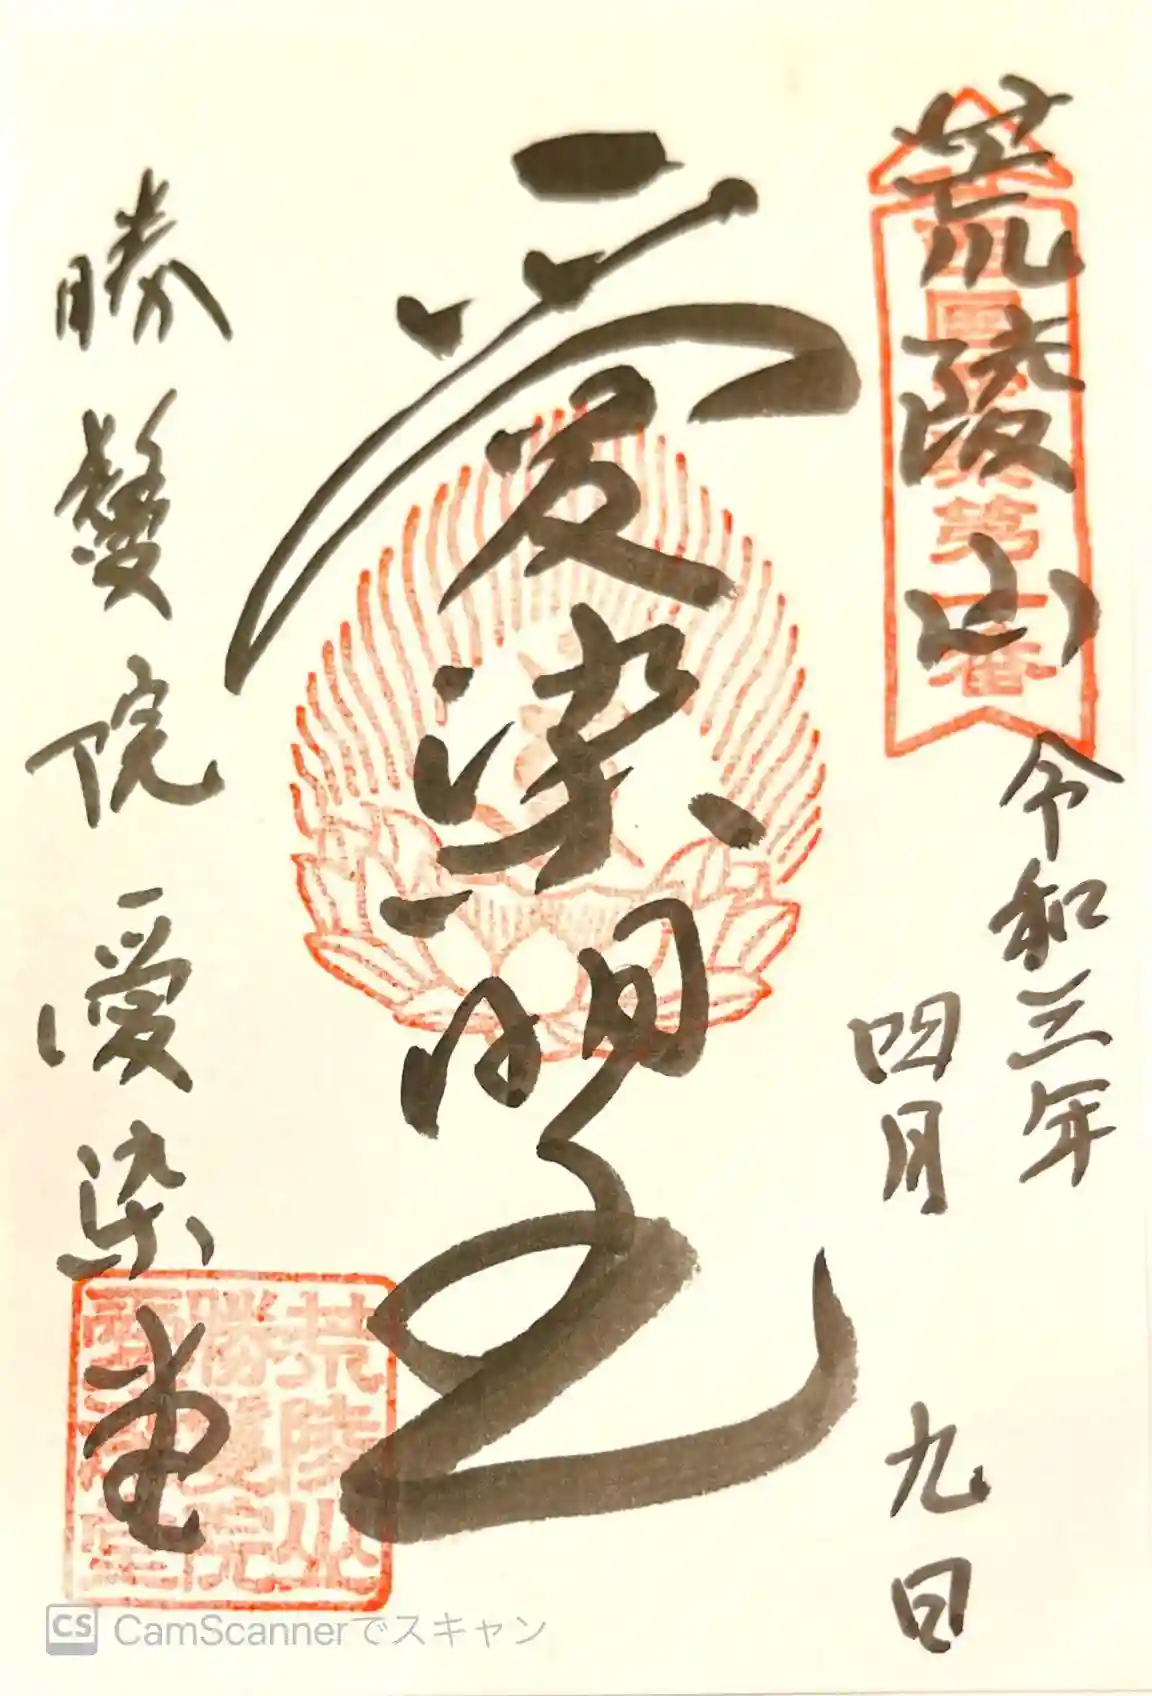 荒陵山
令和三年
四月
九日
愛染明王
勝鬘院愛染堂
荒陵山
勝鬘院
CS CamScannerでスキャン